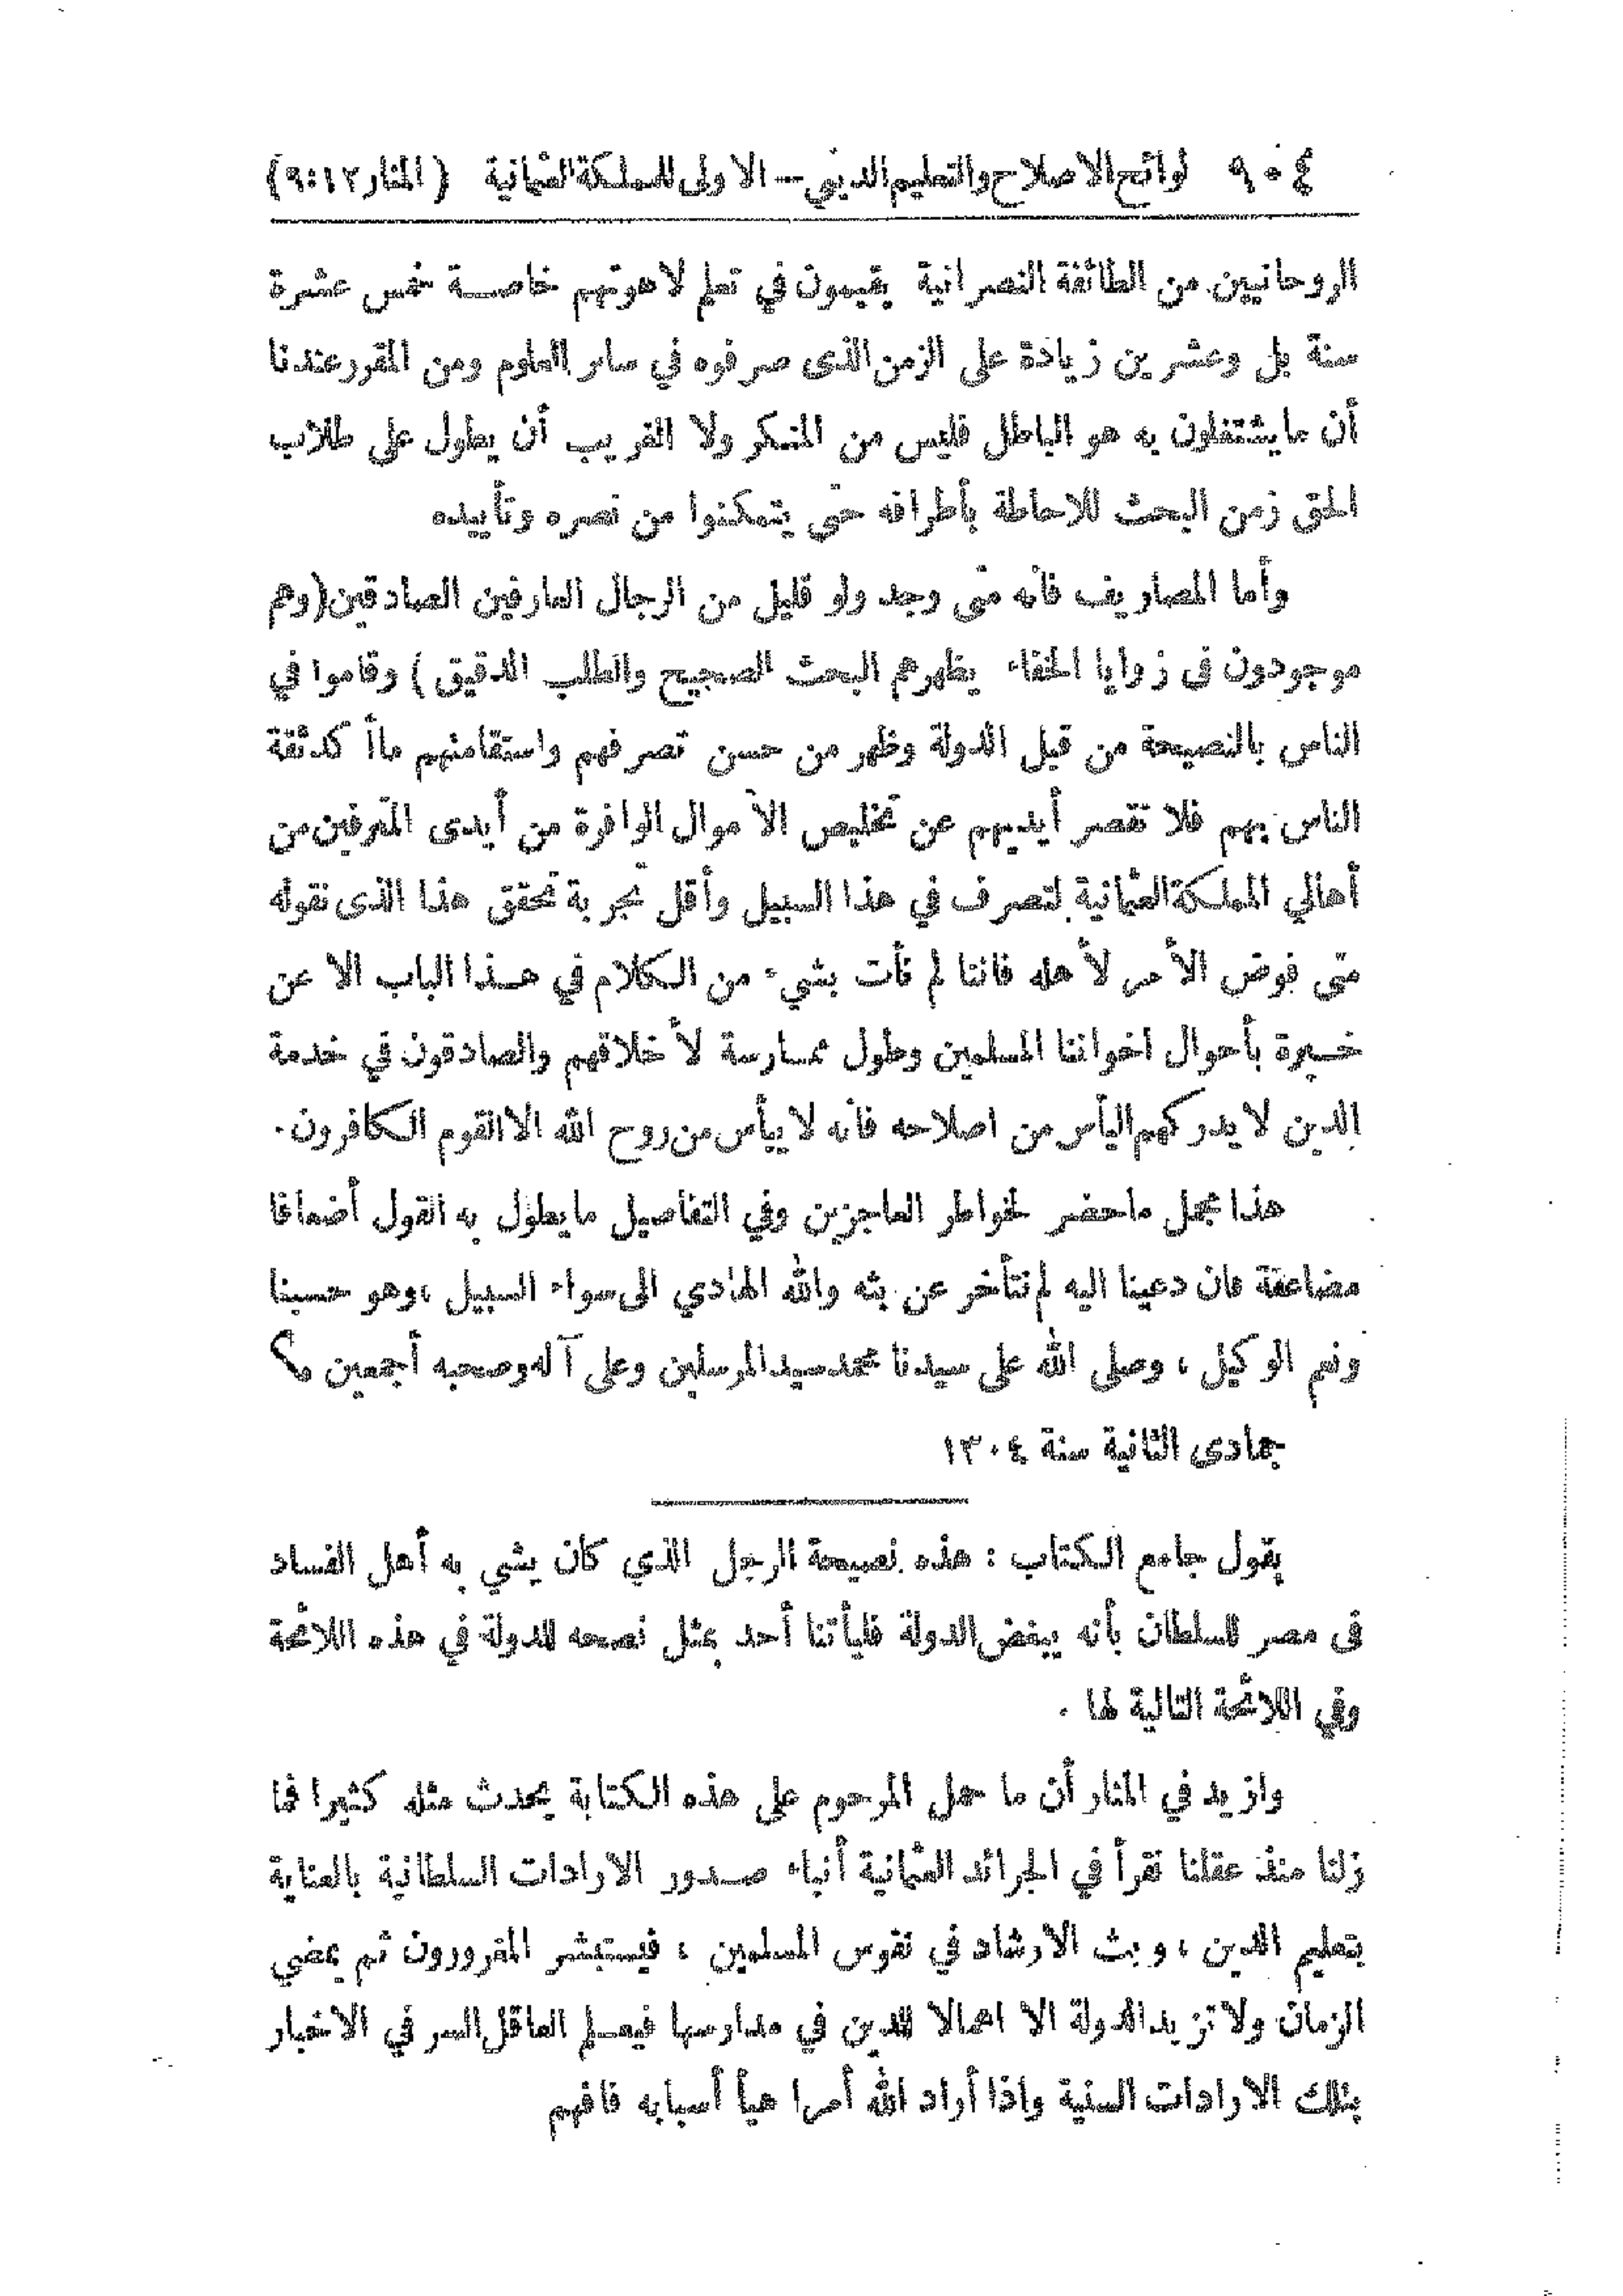 ٩٠٤ لوائح الاصلاح والتعليم الديني — الاولى للمملكة العثمانية (المنار ١٢:٩)
الروحانيين من الطائفة النصرانية يقيمون في تعلم لاهوتهم خاصة خمس عشرة
سنة بل وعشرين زيادة على الزمن الذى صرفوه في سائر العلوم ومن المقرر عندنا
أن ما يشتغلون به هو الباطل فليس من المنكر ولا الغريب أن يطول على طلاب
الحق زمن البحث للاحاطة بأطرافه حتى يتمكنوا من نصره وتأييده
وأما المصاريف فانه متى وجد ولو قليل من الرجال العارفين الصادقين (وهم
موجودون فى زوايا الخفاء يظهرهم البحث الصحيح والطلب الدقيق) وقاموا في
الناس بالنصيحة من قبل الدولة وظهر من حسن تصرفهم واستقامتهم ما أكد ثقة
الناس بهم فلا تقصر أيديهم عن تخليص الأموال الوافرة من أيدى المترفين من
أهالي المملكة العثمانية لتصرف في هذا السبيل وأقل تجربة تحقق هذا الذى نقوله
متى فوض الأمر لأهله فاننا لم نأت بشيء من الكلام في هذا الباب الا عن
خبرة بأحوال اخواننا المسلمين وطول ممارسة لأخلاقهم والصادقون في خدمة
الدين لا يدركهم اليأس من اصلاحه فانه لا ييأس من روح الله الا القوم الكافرون.
هذا مجمل ما حضر لخواطر العاجزين وفي التفاصيل ما يطول به القول أضعافا
مضاعفة فان دعينا اليه لم نتأخر عن بثه والله الهادي الى سواء السبيل ، وهو حسبنا
ونعم الوكيل ، وصلى الله على سيدنا محمد سيد المرسلين وعلى آله وصحبه أجمعين م؟
جمادى الثانية سنة ١٣٠٤
يقول جامع الكتاب : هذه نصيحة الرجل الذي كان يشي به أهل الفساد
فى مصر للسلطان بأنه يبغض الدولة فليأتنا أحد بمثل نصحه للدولة في هذه اللائحة
وفي اللائحة التالية لها .
وازيد في المنار أن ما حمل المرحوم على هذه الكتابة يحدث مثله كثيرا فما
زلنا منذ عقلنا نقرأ في الجرائد العثمانية أنباء صدور الارادات السلطانية بالعناية
بتعليم الدين ، وبث الارشاد في نفوس المسلمين ، فيستبشر المغرورون ثم يمضي
الزمان ولا تزيد الدولة الا اهمالا للدين في مدارسها فيعلم العاقل السر في الاخبار
بتلك الارادات السنية واذا أراد الله أمرا هيأ أسبابه فافهم